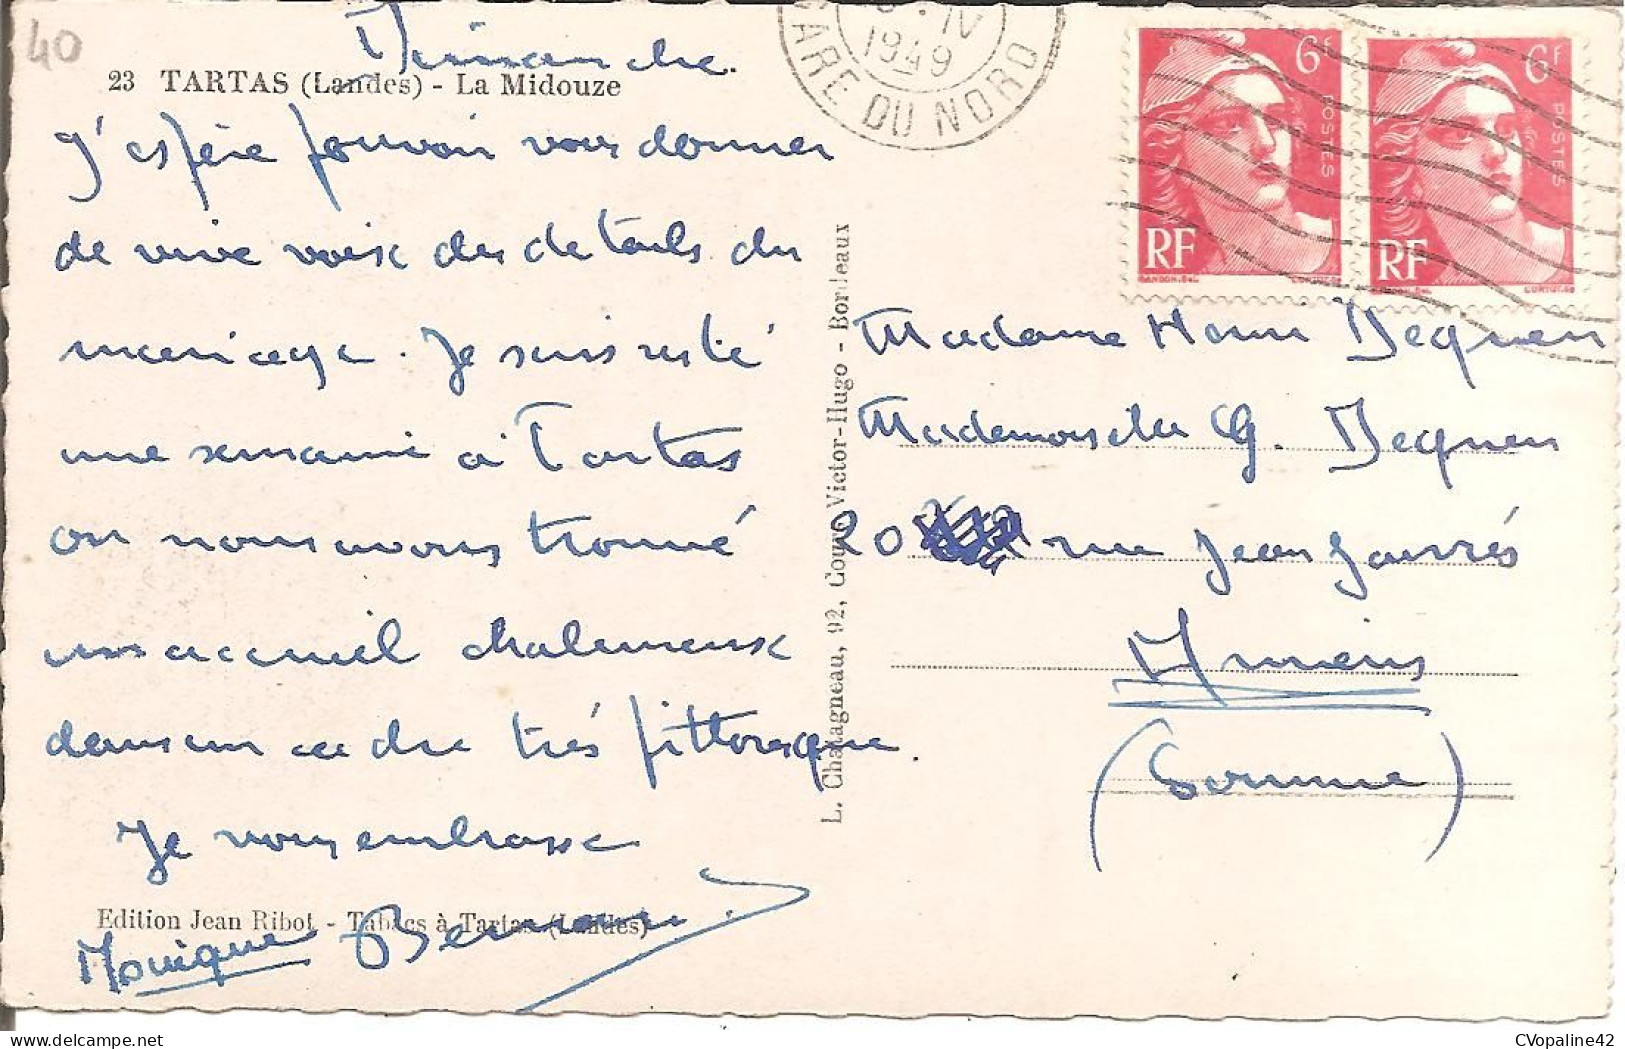 40
Dimanche.
23 TARTAS (Landes) - La Midouze
J'espère pouvoir vous donner
de vive voix des details du
mariage. Je suis resté
une semaine à Tartas
où nous avons trouvé
un accueil chaleureux
dans un cadre très pittoresque.
Je vous embrasse
Edition Jean Ribot - Tabacs à Tartas (Landes)
Monique Bernard
L. Chatagneau, 92, Cours Victor-Hugo - Bordeaux
IV
1949
GARE DU NORD
6F
POSTES
RF
GANDON.DEL
CORTOT.SC
6F
POSTES
RF
CORTOT.SC
Madame Dequen
Mademoiselle G. Dequen
20 rue Jean Jaurès
Amiens
(Somme)
CVopaline42